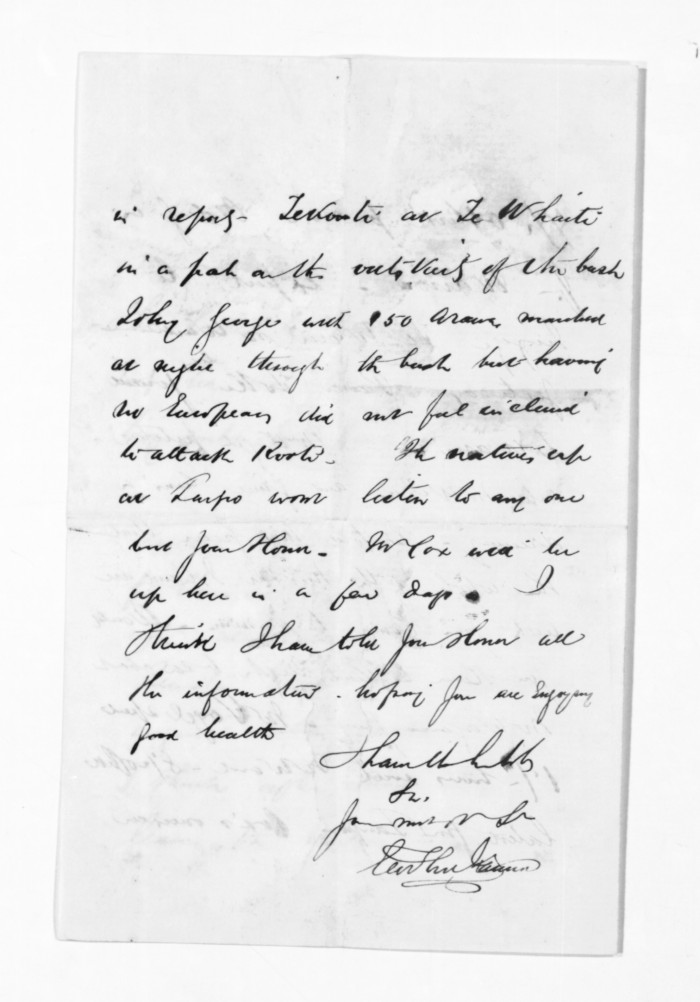 is report Te Kooti at Te Whaiti
in a pah on the outskirts of the bush
John George with 150 Arawa marched
at night through the bush but having
no Europeans did not feel inclined
to attack Kooti. The natives up
at Taupo wont listen to any one
but Your Honor. Mr Cox will be
up here in a few days. I
think I have told Your Honor all
the information. hoping you are enjoying
good health
I have the honor to be
Sir
Your most ob Sr